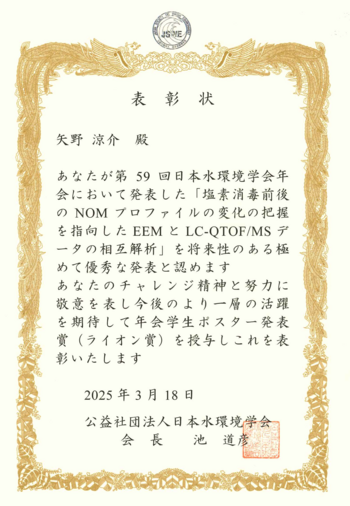 JSWE
表彰状
矢野 涼介 殿
あなたが第 59 回日本水環境学会年
会において発表した「塩素消毒前後
の NOM プロファイルの変化の把握
を指向した EEM と LC-QTOF/MS デ
ータの相互解析」を将来性のある極
めて優秀な発表と認めます
あなたのチャレンジ精神と努力に
敬意を表し今後のより一層の活躍
を期待して年会学生ポスター発表
賞（ライオン賞）を授与しこれを表
彰いたします
2025 年 3 月 18 日
公益社団法人日本水環境学会
会 長 池 道彦